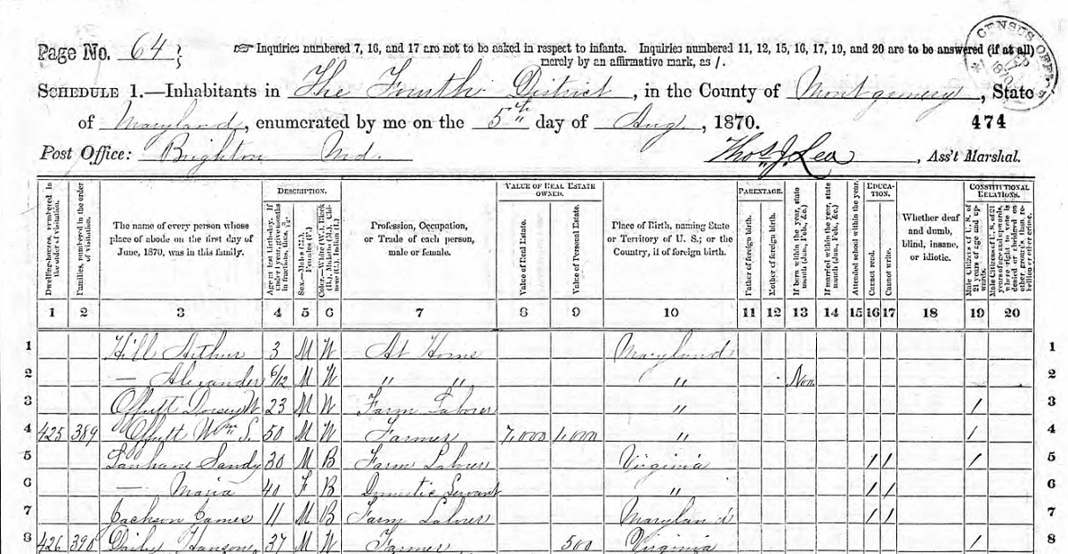 Page No. 64
☞ Inquiries numbered 7, 16, and 17 are not to be asked in respect to infants. Inquiries numbered 11, 12, 15, 16, 17, 19, and 20 are to be answered (if at all)
merely by an affirmative mark, as /.
CENSUS OFFICE
SCHEDULE 1.—Inhabitants in The Fourth District, in the County of Montgomery, State
of Maryland, enumerated by me on the 5th day of Aug, 1870.
474
Post Office: Brighton Md.
Thos. J. Lea, Ass't Marshal.
Dwelling-houses, numbered in the order of visitation.
Families, numbered in the order of visitation.
The name of every person whose place of abode on the first day of June, 1870, was in this family.
DESCRIPTION.
Age at last birth-day. If under 1 year, give months in fractions, thus, 3/12
Sex.—Males (M.), Females (F.)
Color.—White (W.), Black (B.), Mulatto (M.), Chinese (C.), Indian (I.)
Profession, Occupation, or Trade of each person, male or female.
VALUE OF REAL ESTATE OWNED.
Value of Real Estate.
Value of Personal Estate.
Place of Birth, naming State or Territory of U. S.; or the Country, if of foreign birth.
PARENTAGE.
Father of foreign birth.
Mother of foreign birth.
If born within the year, state month (Jan., Feb., &c.)
If married within the year, state month (Jan., Feb., &c.)
Attended school within the year.
EDUCATION.
Cannot read.
Cannot write.
Whether deaf and dumb, blind, insane, or idiotic.
CONSTITUTIONAL RELATIONS.
Male Citizens of U. S. of 21 years of age and upwards.
1 2 3 4 5 6 7 8 9 10 11 12 13 14 15 16 17 18 19 20
1 Hill Arthur 3 M W At Home Maryland 1
2 — Alexander 6/12 M W " " " Nov 2
3 Offutt Dorsey W 23 M W Farm Laborer " / 3
4 425 389 Offutt Wm S. 50 M W Farmer 7,000 1,000 " / 4
5 Lanham Sandy 30 M B Farm Laborer Virginia / / / 5
6 — Maria 40 F B Domestic Servant " / / 6
7 Jackson James 11 M B Farm Laborer Maryland / / 7
8 426 390 Hanson 37 M W Farmer 500 Virginia / 8